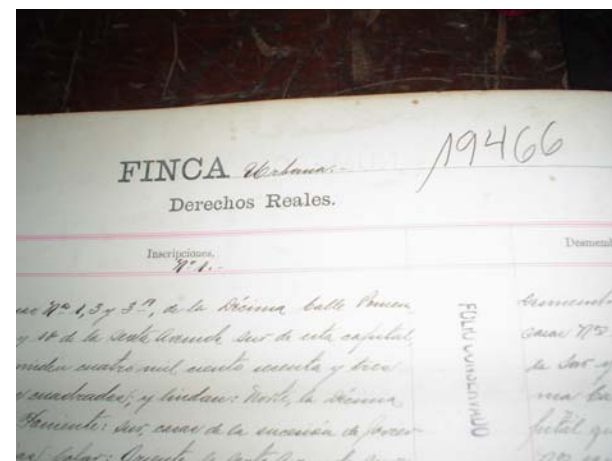 FINCA Urbana.-
19466
Derechos Reales.
Inscripciones,
Nº 1.-
Nº 1, 3 y 3 A, de la Décima Calle Ponien
y 18 de la sexta Avenida Sur de esta capital,
miden cuatro mil ciento sesenta y tres
cuadradas; y lindan: Norte, la Décima
Poniente: Sur, casas de la sucesión de
Solar: Oriente la Sexta
FOLIO CONSERVADO
Desmemb
casas Nº
de Sur y
ma Ca
pital qu